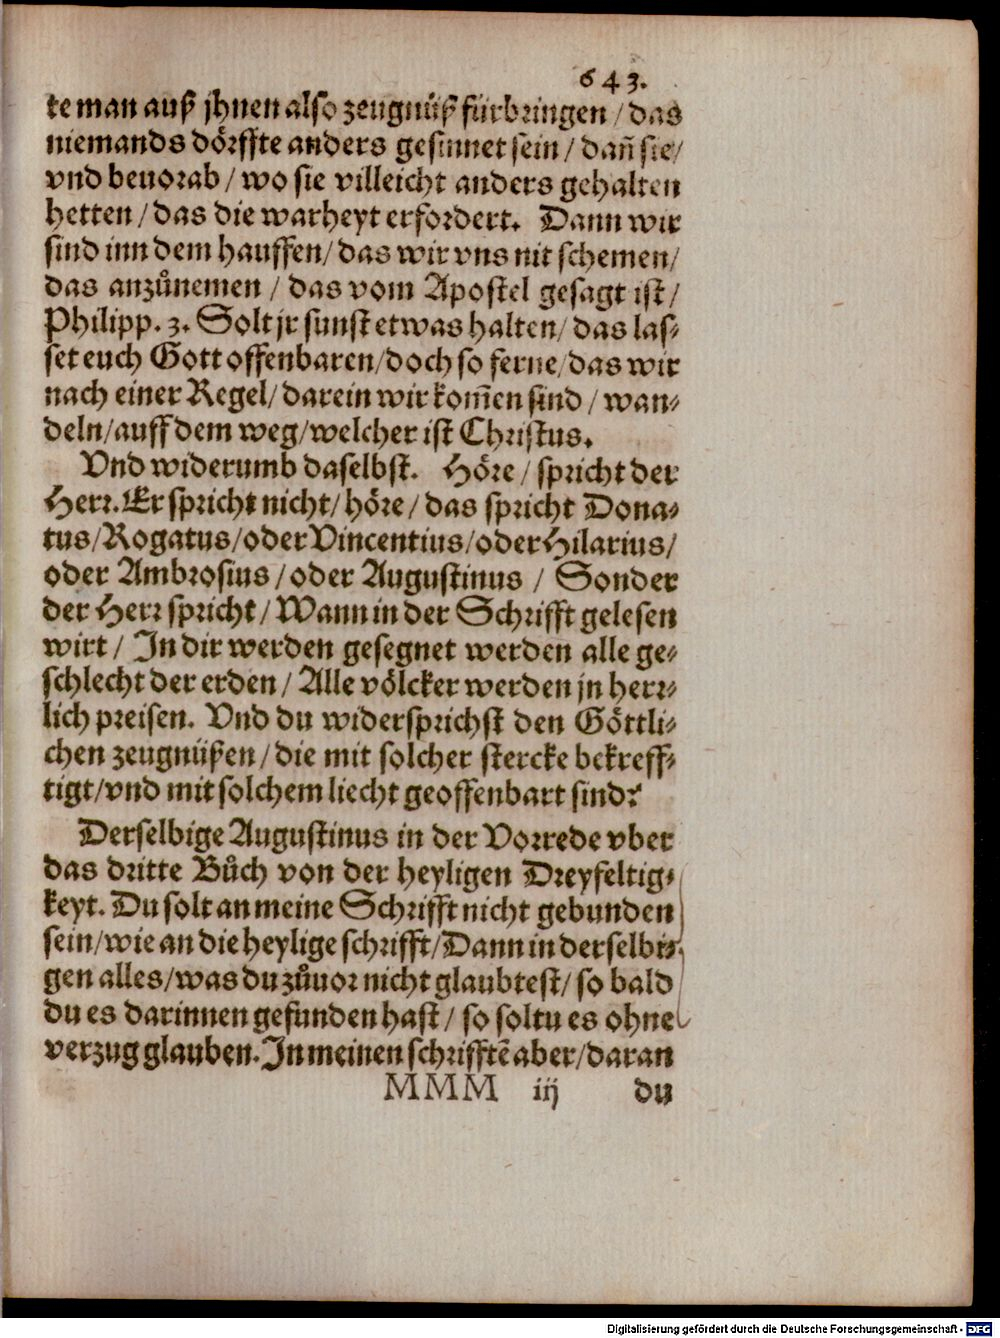 643.
te man auß jhnen also zeugnüß fürbringen / das
niemands dörffte anders gesinnet sein / dañ sie /
vnd beuorab / wo sie villeicht anders gehalten
hetten / das die warheyt erfordert. Dann wir
sind inn dem hauffen / das wir vns nit schemen /
das anzůnemen / das vom Apostel gesagt ist /
Philipp. 3. Solt jr sunst etwas halten / das las-
set euch Gott offenbaren / doch so ferne / das wir
nach einer Regel / darein wir kom̃en sind / wan-
deln / auff dem weg / welcher ist Christus.
Vnd widerumb daselbst. Höre / spricht der
Herr. Er spricht nicht / höre / das spricht Dona-
tus / Rogatus / oder Vincentius / oder Hilarius /
oder Ambrosius / oder Augustinus / Sonder
der Herr spricht / Wann in der Schrifft gelesen
wirt / In dir werden gesegnet werden alle ge-
schlecht der erden / Alle völcker werden jn herr-
lich preisen. Vnd du widersprichst den Göttli-
chen zeugnüßen / die mit solcher stercke bekreff-
tigt / vnd mit solchem liecht geoffenbart sind?
Derselbige Augustinus in der Vorrede vber
das dritte Bůch von der heyligen Dreyfeltig-
keyt. Du solt an meine Schrifft nicht gebunden
sein / wie an die heylige schrifft / Dann in derselbi-
gen alles / was du zůuor nicht glaubtest / so bald
du es darinnen gefunden hast / so soltu es ohne
verzug glauben. In meinen schrifftẽ aber / daran
MMM iij du
Digitalisierung gefördert durch die Deutsche Forschungsgemeinschaft - DFG